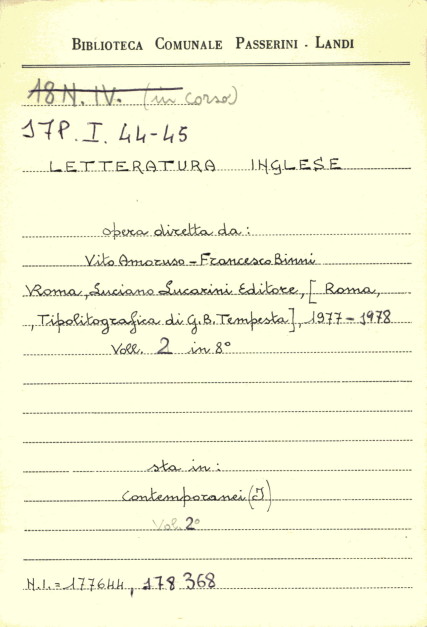 BIBLIOTECA COMUNALE PASSERINI - LANDI
18 N. IV. (in corso)
17P. I. 44-45
LETTERATURA INGLESE
opera diretta da:
Vito Amoruso - Francesco Binni
Roma, Luciano Lucarini Editore, [Roma,
, Tipolitografica di G.B. Tempesta], 1977 - 1978
Voll. 2 in 8°
sta in:
Contemporanei (I)
Vol. 2°
N.I. = 177644, 178368